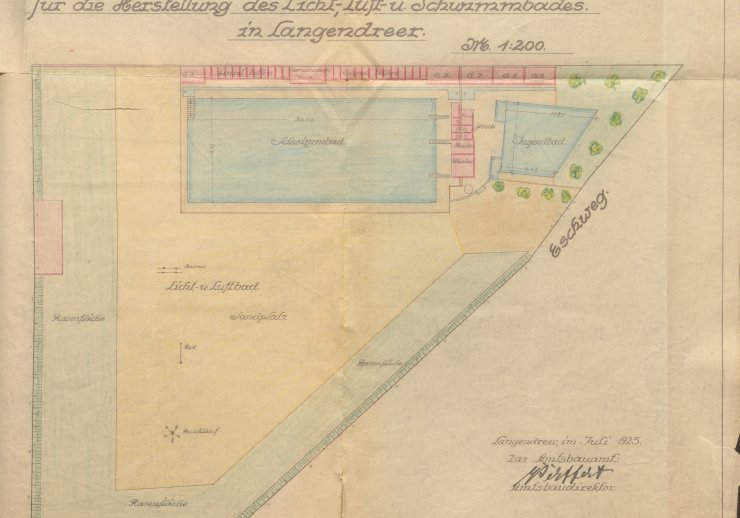 für die Herstellung des Licht-, Luft- u. Schwimmbades.
in Langendreer.
M. 1:200.
G.Z.
G.Z.
G.Z.
G.Z.
G.Z.
Schwimmbad
Jugendbad
Eschweg.
Barren
Licht- u. Luftbad
Sandplatz
Rasenfläche
Reck
Rasenfläche
Rundlauf
Rasenfläche
Langendreer, im Juli 1925.
Das Amtsbauamt:
Amtsbaudirektor.